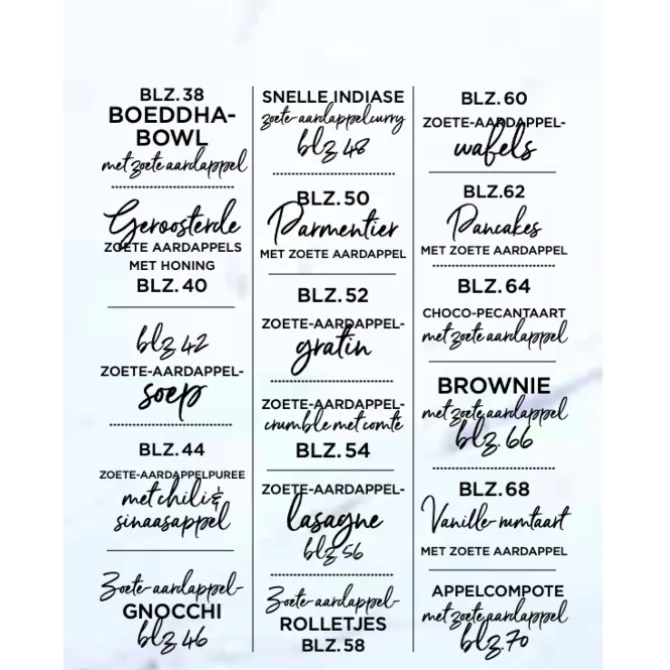 BLZ. 38
BOEDDHA-
BOWL
met zoete aardappel
Geroosterde
ZOETE AARDAPPELS
MET HONING
BLZ. 40
blz 42
ZOETE-AARDAPPEL-
soep
BLZ. 44
ZOETE-AARDAPPELPUREE
met chili &
sinaasappel
Zoete-aardappel-
GNOCCHI
blz 46
SNELLE INDIASE
zoete-aardappelcurry
blz 48
BLZ. 50
Parmentier
MET ZOETE AARDAPPEL
BLZ. 52
ZOETE-AARDAPPEL-
gratin
ZOETE-AARDAPPEL-
crumble met comté
BLZ. 54
ZOETE-AARDAPPEL-
lasagne
blz 56
Zoete-aardappel-
ROLLETJES
BLZ. 58
BLZ. 60
ZOETE-AARDAPPEL-
wafels
BLZ.62
Pancakes
MET ZOETE AARDAPPEL
BLZ. 64
CHOCO-PECANTAART
met zoete aardappel
BROWNIE
met zoete aardappel
blz. 66
BLZ. 68
Vanille-rumtaart
MET ZOETE AARDAPPEL
APPELCOMPOTE
met zoete aardappel
blz. 70